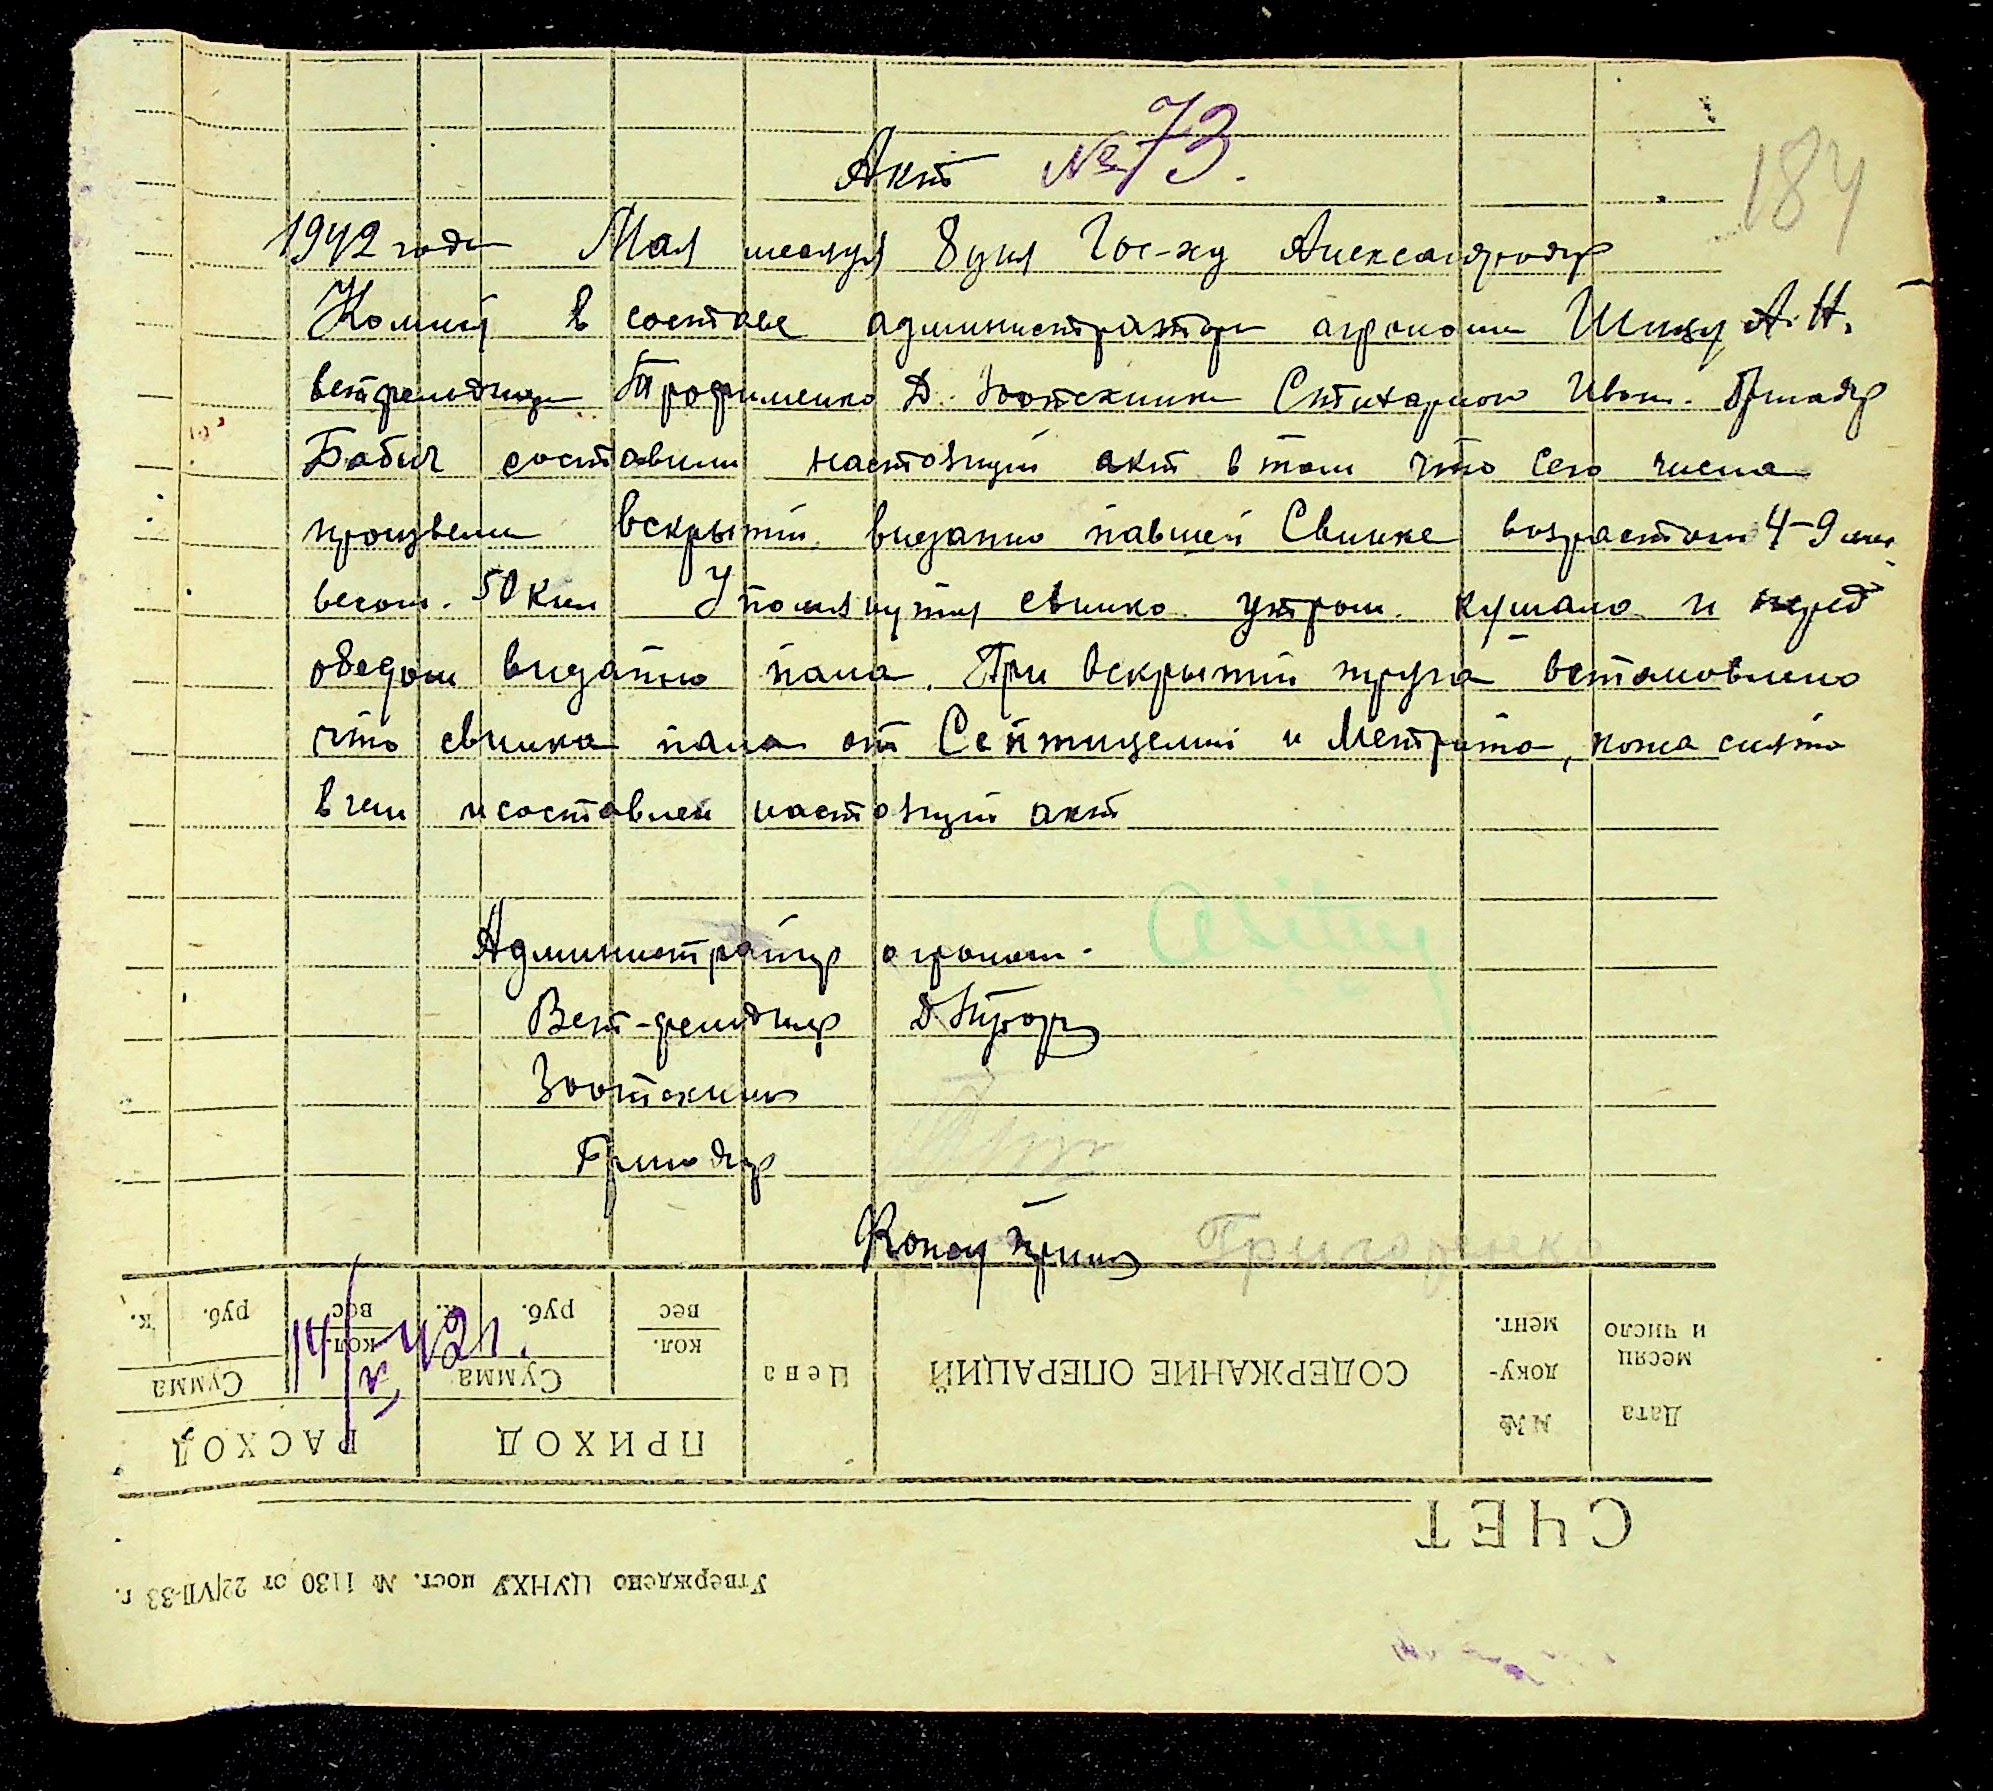 Акт №73.
184
1942 года Мая месяця 8 дня Гос-ху Александродар
Комисия в составе администратора агронома А.Н.
ветфельдшера Трофименко Д. Зоотехника Ивон. Бригадир
Бабич составили настоящий акт в том что сего числа
произвели вскрытии внезапно павшей Свинке возрастом 4-9 мц
весом. 50 кил Упомянутая свинка утром. кушала и перед
обедом внезапно пала. При вскрытии трупа встановлено
что свинка пала от Септицемии и Метрита, кожа снята
в чем и составлен настоящий акт
Администратор агроном.
Вет-фельдшер
Зоотехник
Бригадир
Григоренко
14/V 42 г.
СЧЕТ
Утверждено ЦУНХУ пост. № 1130 от 22/VII-33 г.
Дата месяц и число
№№ доку- мент.
СОДЕРЖАНИЕ ОПЕРАЦИЙ
Цена
ПРИХОД
кол. вес
Сумма
руб. к.
РАСХОД
кол. вес
Сумма
руб. к.